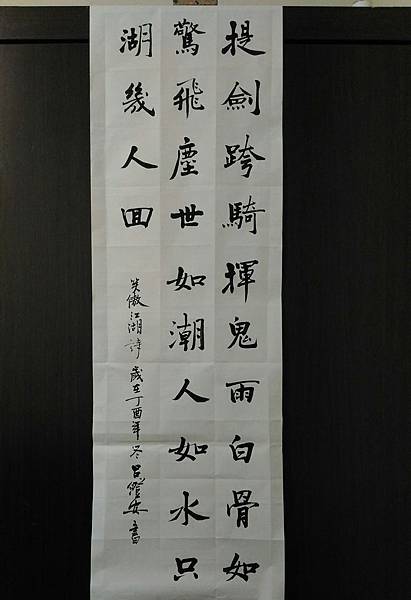 提劍跨騎揮鬼雨白骨如
驚飛塵世如潮人如水只
湖幾人回
笑傲江湖詩 歲在丁酉年冬 呂安書